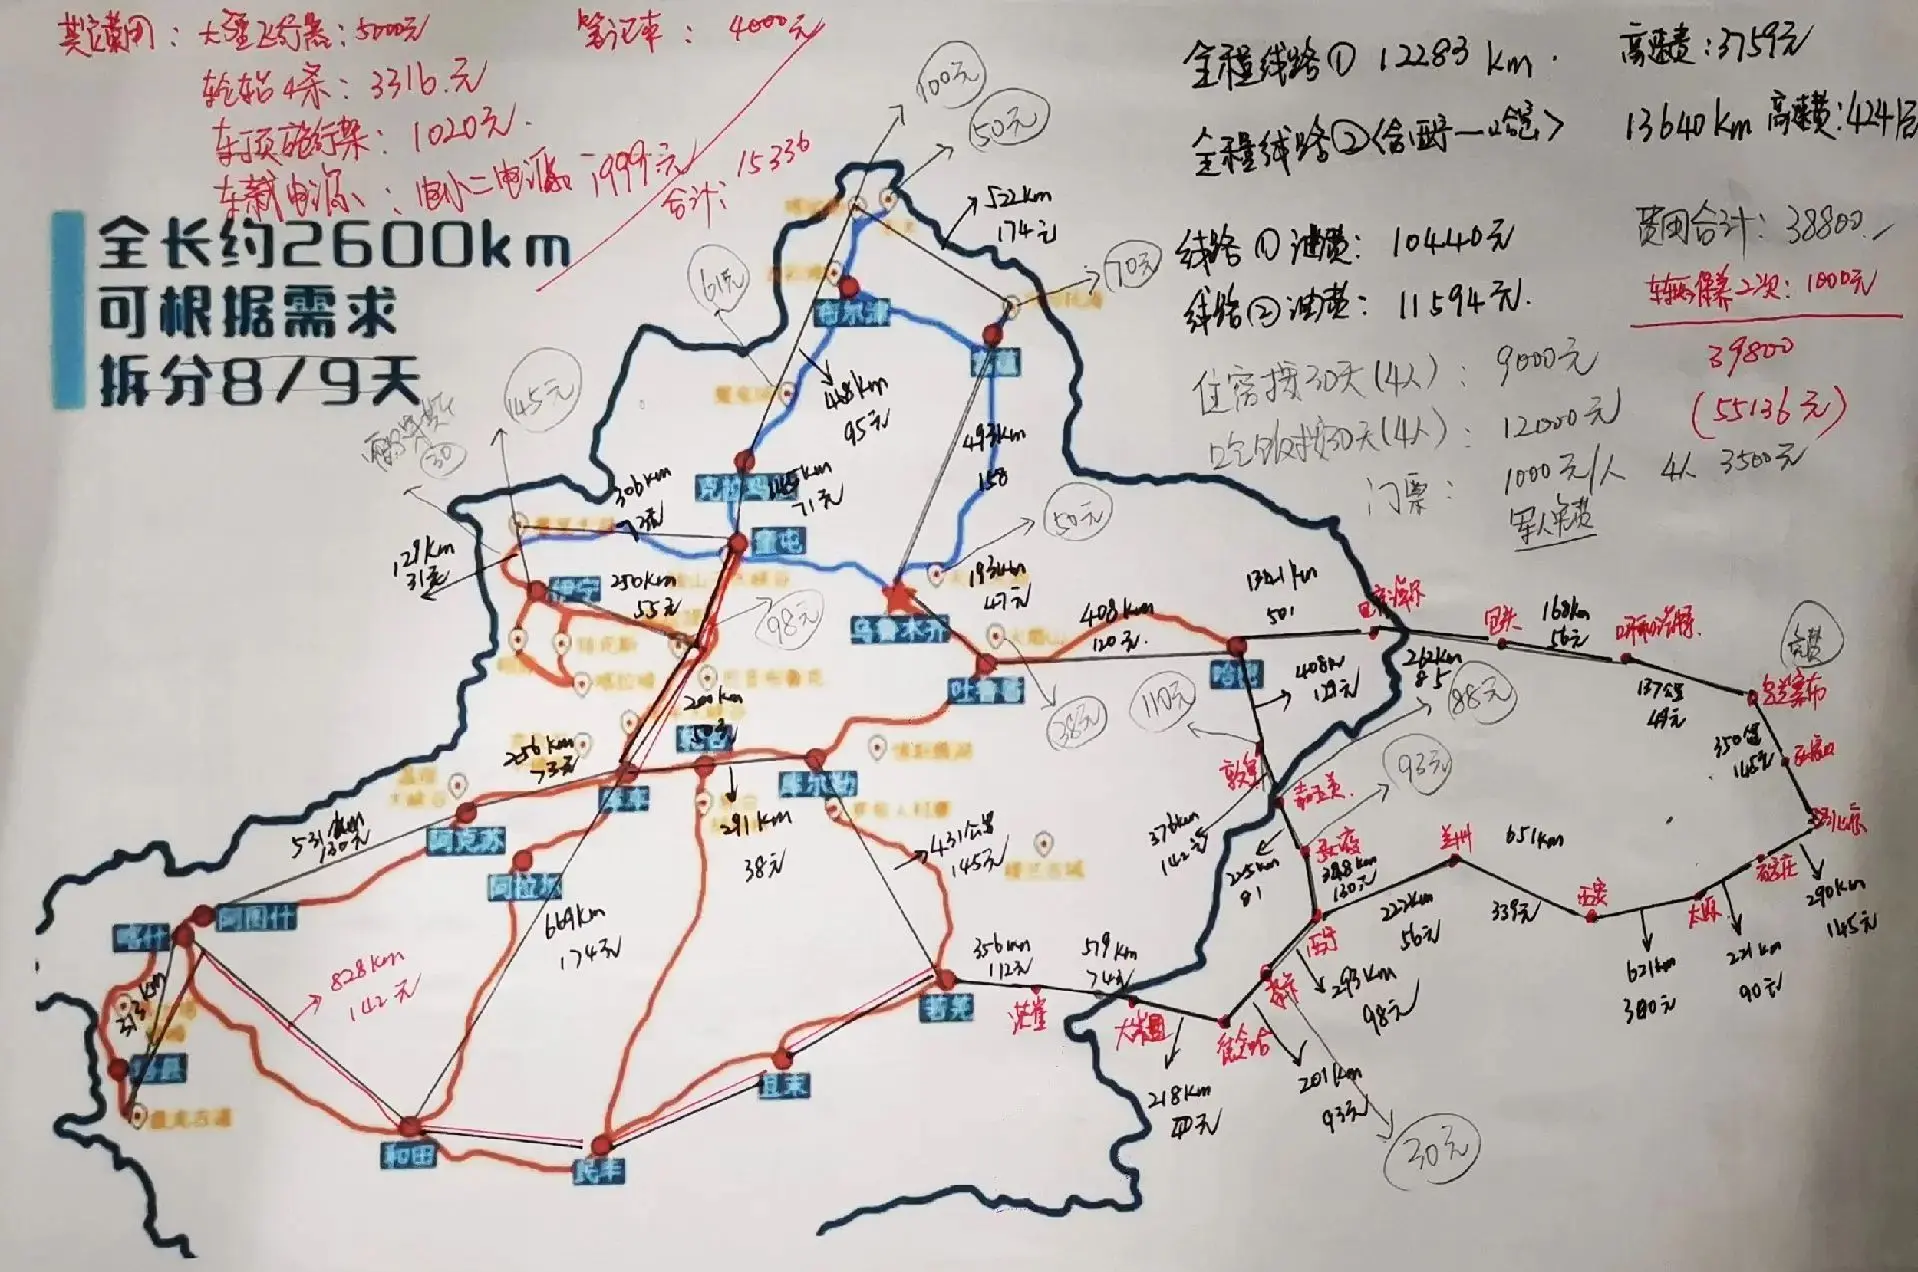 其它费用：大疆飞行器：5000元
笔记本：4000元
轮胎4条：3316元
车顶旅行架：1020元.
车载电源：电小二电源 1999元
合计：15336
全程线路① 12283 km. 高速费：3759元
全程线路②〈含西宁—哈密〉 13640km 高速费：4241元
线路①油费：10440元
线路②油费：11594元.
费用合计：38800
车辆保养二次：1000元
39800
(55136元)
住宿按30天(4人)：9000元
吃饭按30天(4人)：12000元
门票：1000元/人 4人 3500元
军人免费
全长约2600km
可根据需求
拆分8/9天
100元
50元
522km
174元
70元
61元
布尔津
468km
95元
493km
158
145元
30
306km
克拉玛
145km
71元
奎屯
50元
129km
31元
伊宁
250km
55元
98元
乌鲁木齐
193km
47元
408km
120元.
吐鲁番
38元
哈密
1341km
501
262km
85
包头
168km
56元
呼和浩特
137公里
49元
免费
乌兰察布
350公里
145元
张家口
北京
290km
145元
石家庄
221km
90元
太原
621km
380元
西安
651km
339元
兰州
222km
56元
西宁
408km
129元
110元
88元
敦煌
嘉玉关.
93元
376km
142元
225km
81
张掖
348km
130元
293km
98元
201km
93元
30元
德令哈
218km
大柴旦
579km
74元
茫崖
356km
112元
若羌
431公里
145元
库尔勒
291km
38元
200km
50元
库车
256km
73元
阿克苏
531km
130元
阿拉尔
669km
174元
阿图什
喀什
828km
142元
313km
塔县
和田
民丰
且末